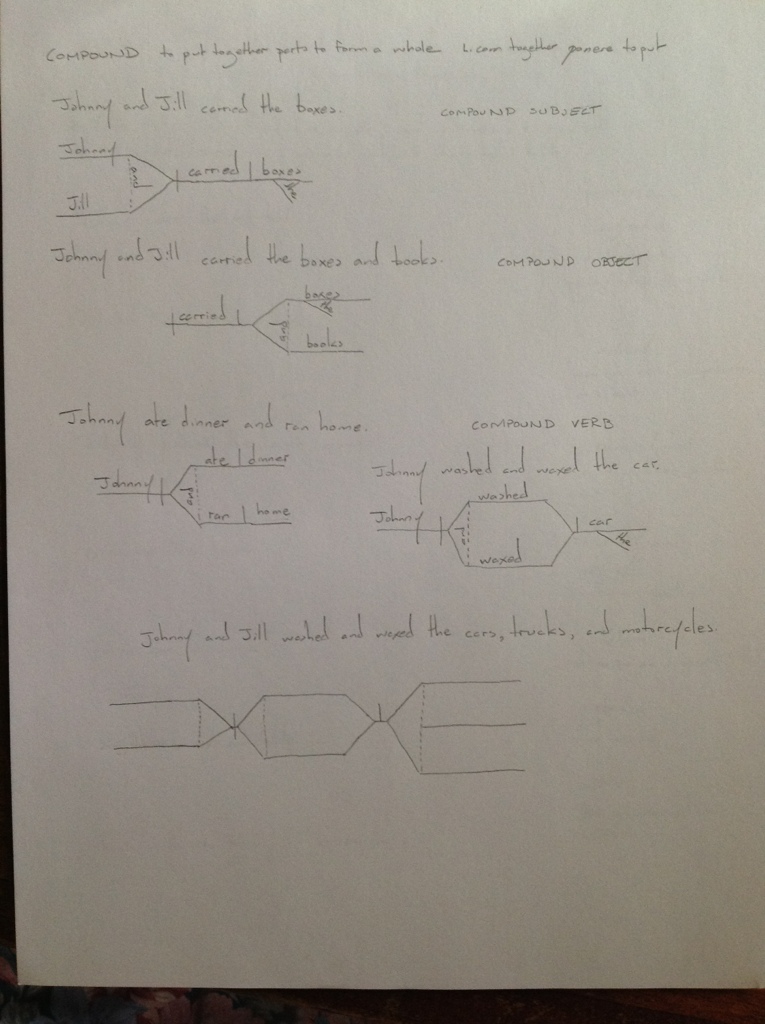 COMPOUND to put together parts to form a whole L. com together ponere to put
Johnny and Jill carried the boxes. COMPOUND SUBJECT
Johnny
and
Jill
carried boxes
the
Johnny and Jill carried the boxes and books. COMPOUND OBJECT
carried
boxes
the
and
books
Johnny ate dinner and ran home. COMPOUND VERB
Johnny
ate dinner
and
ran home
Johnny washed and waxed the car.
Johnny
washed
and
waxed
car
the
Johnny and Jill washed and waxed the cars, trucks, and motorcycles.